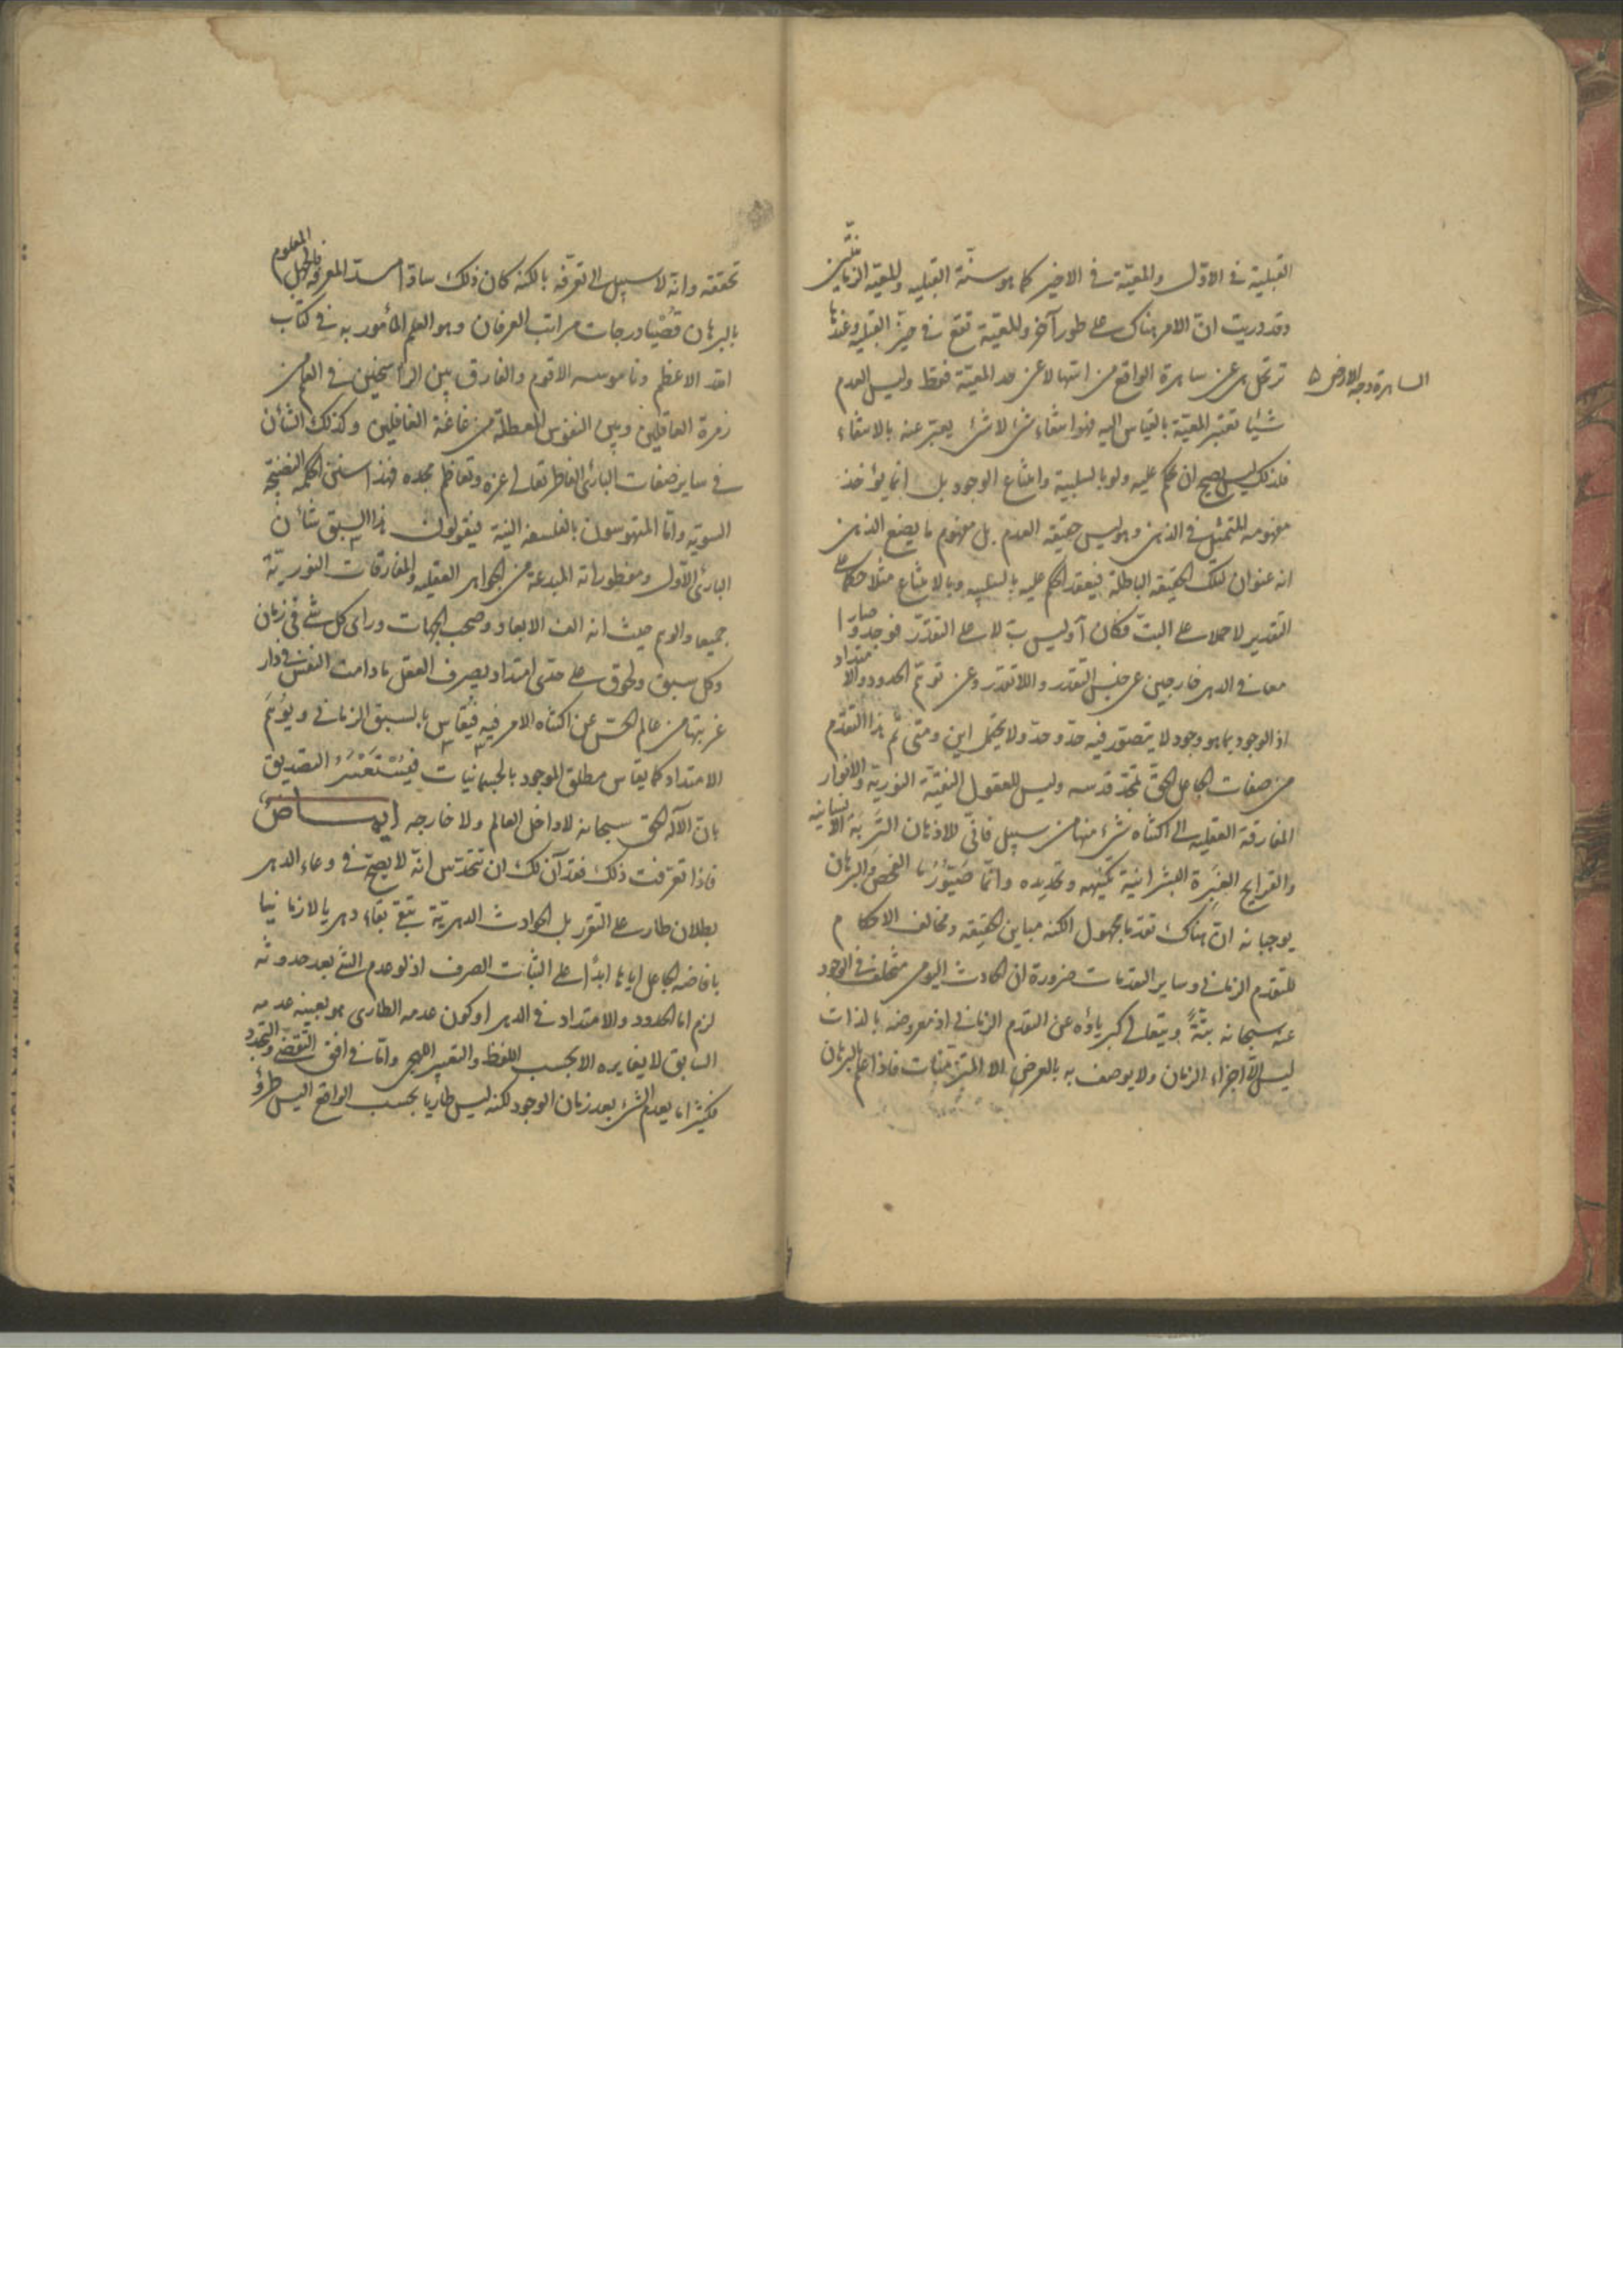 القبلية في الاول والمعية في الاخير كما هو سنة القبلية والمعية الزمانيتين
وقد دريت ان الامر هناك على طور آخر والمعية تقع في حيز القبلية وعندها
ترتحل هي عن ساهرة الواقع من اسها لا عن حد المعية فقط وليس العدم
الساهرة وجه الارض
شيئا تعتبر المعية بالقياس اليه فهو انتفاء شئ لا شئ يعبر عنه بالانتفاء
فلذلك ليس يصح ان يحكم عليه ولو بالسلبية وامتناع الوجود بل انما يؤخذ
مفهومه المتمثل في الذهن وهو ليس حقيقة العدم بل مفهوم ما يضع الذهن
انه عنوان لتلك الحقيقة الباطلة فيعقد الحكم عليه بالسلبية وبالامتناع مثلا حكما على
التقدير لا حملا على البت فكان آ وليس ب لا على التقدر فوجدا وصارا
معا في الدهر خارجين عن جنس التقدر واللاتقدر وعن توهم الحدود والامتداد
اذ الوجود بما هو وجود لا يتصور فيه حد وحد ولا يحتمل اين ومتى ثم هذا التقدم
من صفات الجاعل الحق تمجد قدسه وليس للعقول النقية النورية والانوار
المفارقة العقلية الى اكتناه شئ منها من سبيل فانى للاذهان التربة الانسانية
والقرايح الغبرة البشرانية تكنيهه وتحديده وانما صيورها الفحص والبرهان
يوجبانه ان هناك تقدما مجهول الكنه مباين الحقيقة ومخالف الاحكام
للتقدم الزماني وساير التقدمات ضرورة ان الحادث اليومي متخلف في الوجود
عنه سبحانه بتة ويتعالى كبرياؤه عن التقدم الزماني اذ معروضه بالذات
ليس الا اجزاء الزمان ولا يوصف به بالعرض الا المتزمنات فاذا علم بالبرهان
تحققه وانه لا سبيل الى تعرفه بالكنه كان ذلك سادا مسد المعرفة فالجهل المعلوم
بالبرهان قصيا درجات مراتب العرفان وهو العلم المأمور به في كتاب
الله الاعظم وناموسه الاقوم والفارق بين الراسخين في العلم من
زمرة العاقلين وبين النفوس المعطلة من غاغة الغافلين وكذلك الشان
في ساير صفات البارئ الفاطر تعالى عزه وتعاظم مجده فهذا سنن الحكمة النضيجة
السوية واما المتهوسون بالفلسفة النية فيقولون هذا السبق شأن
البارئ الاول ومفطوراته المبدعة من الجواهر العقلية والمفارقات النورية
جميعا والوهم حيث انه الف الابعاد وصحب الجهات وراى كل شئ في زمان
وكل سبق ولحوق على حتى امتداد يصرف العقل ما دامت النفس في دار
غربتها من عالم الحس عن اكتناه الامر فيه فيقاس بالسبق الزماني ويؤتم
الامتداد كما يقاس مطلق الموجود بالجسمانيات فيستعسر التصديق
بان الاله الحق سبحانه لا داخل العالم ولا خارجه ايماض
فاذا تعرفت ذلك فقد آن لك ان تتحدس انه لا يصح في وعاء الدهر
بطلان طار على التقرر بل الحوادث الدهرية تبقى بقاء دهريا لا زمانيا
بافاضة الجاعل اياها ابدا على الثبات الصرف اذ لو عدم الشئ بعد حدوثه
لزم اما الحدود والامتداد في الدهر او كون عدمه الطارى هو بعينه عدمه
السابق لا يغايره الا بحسب اللفظ والتعبير اللهجى واما في افق التقضى والتجدد
فكثيرا ما يعدم الشئ بعد زمان الوجود لكنه ليس طاريا بحسب الواقع اليس طرؤ